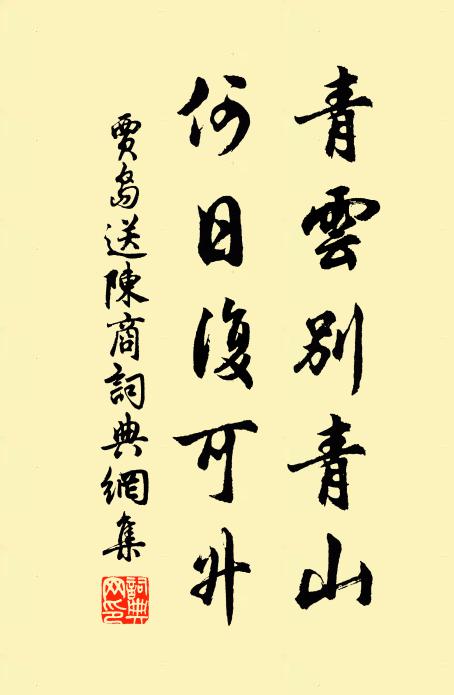 青雲別青山
何日復可升
賈島送陳商詞典網集
詞典
網印